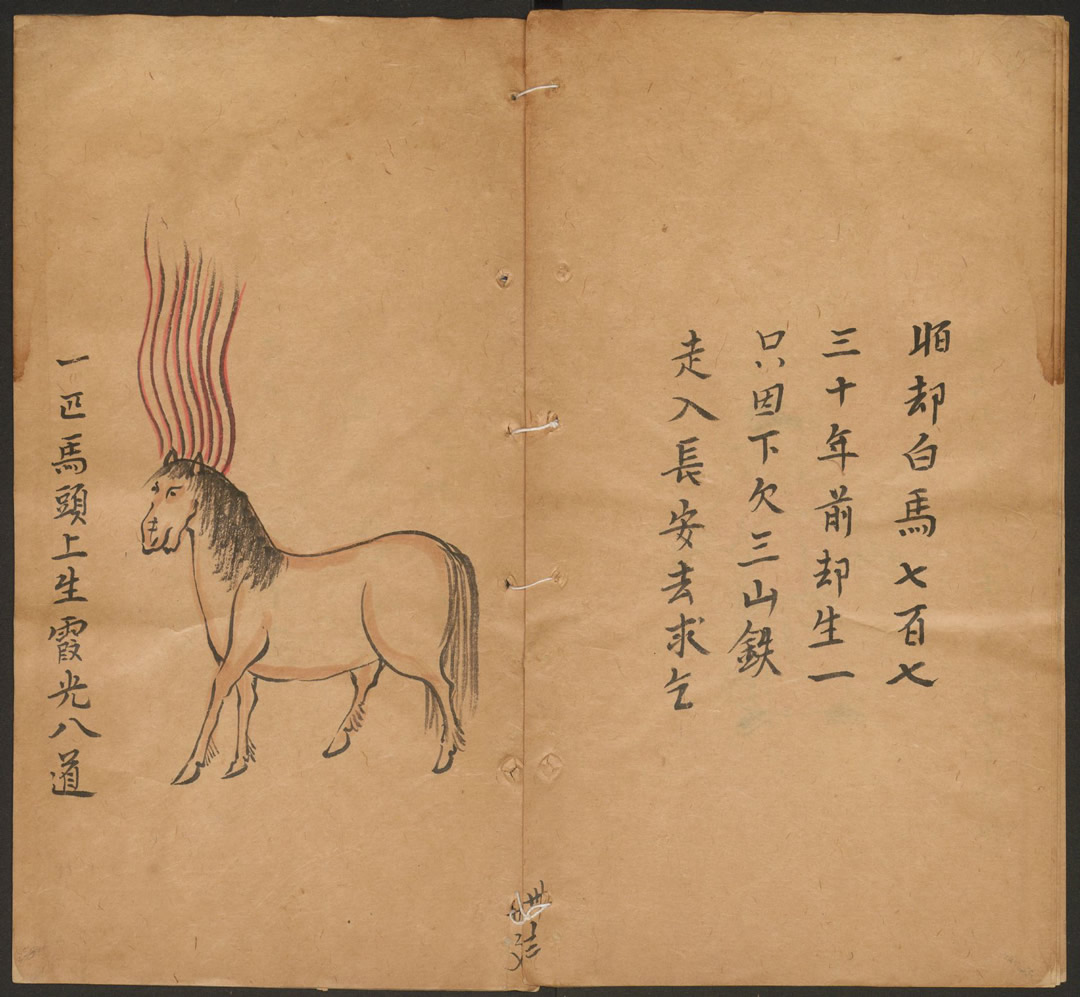 却白馬七百七
三十年前却生一
只因下欠三山鉄
走入長安去求乞
一匹馬頭上生霞光八道